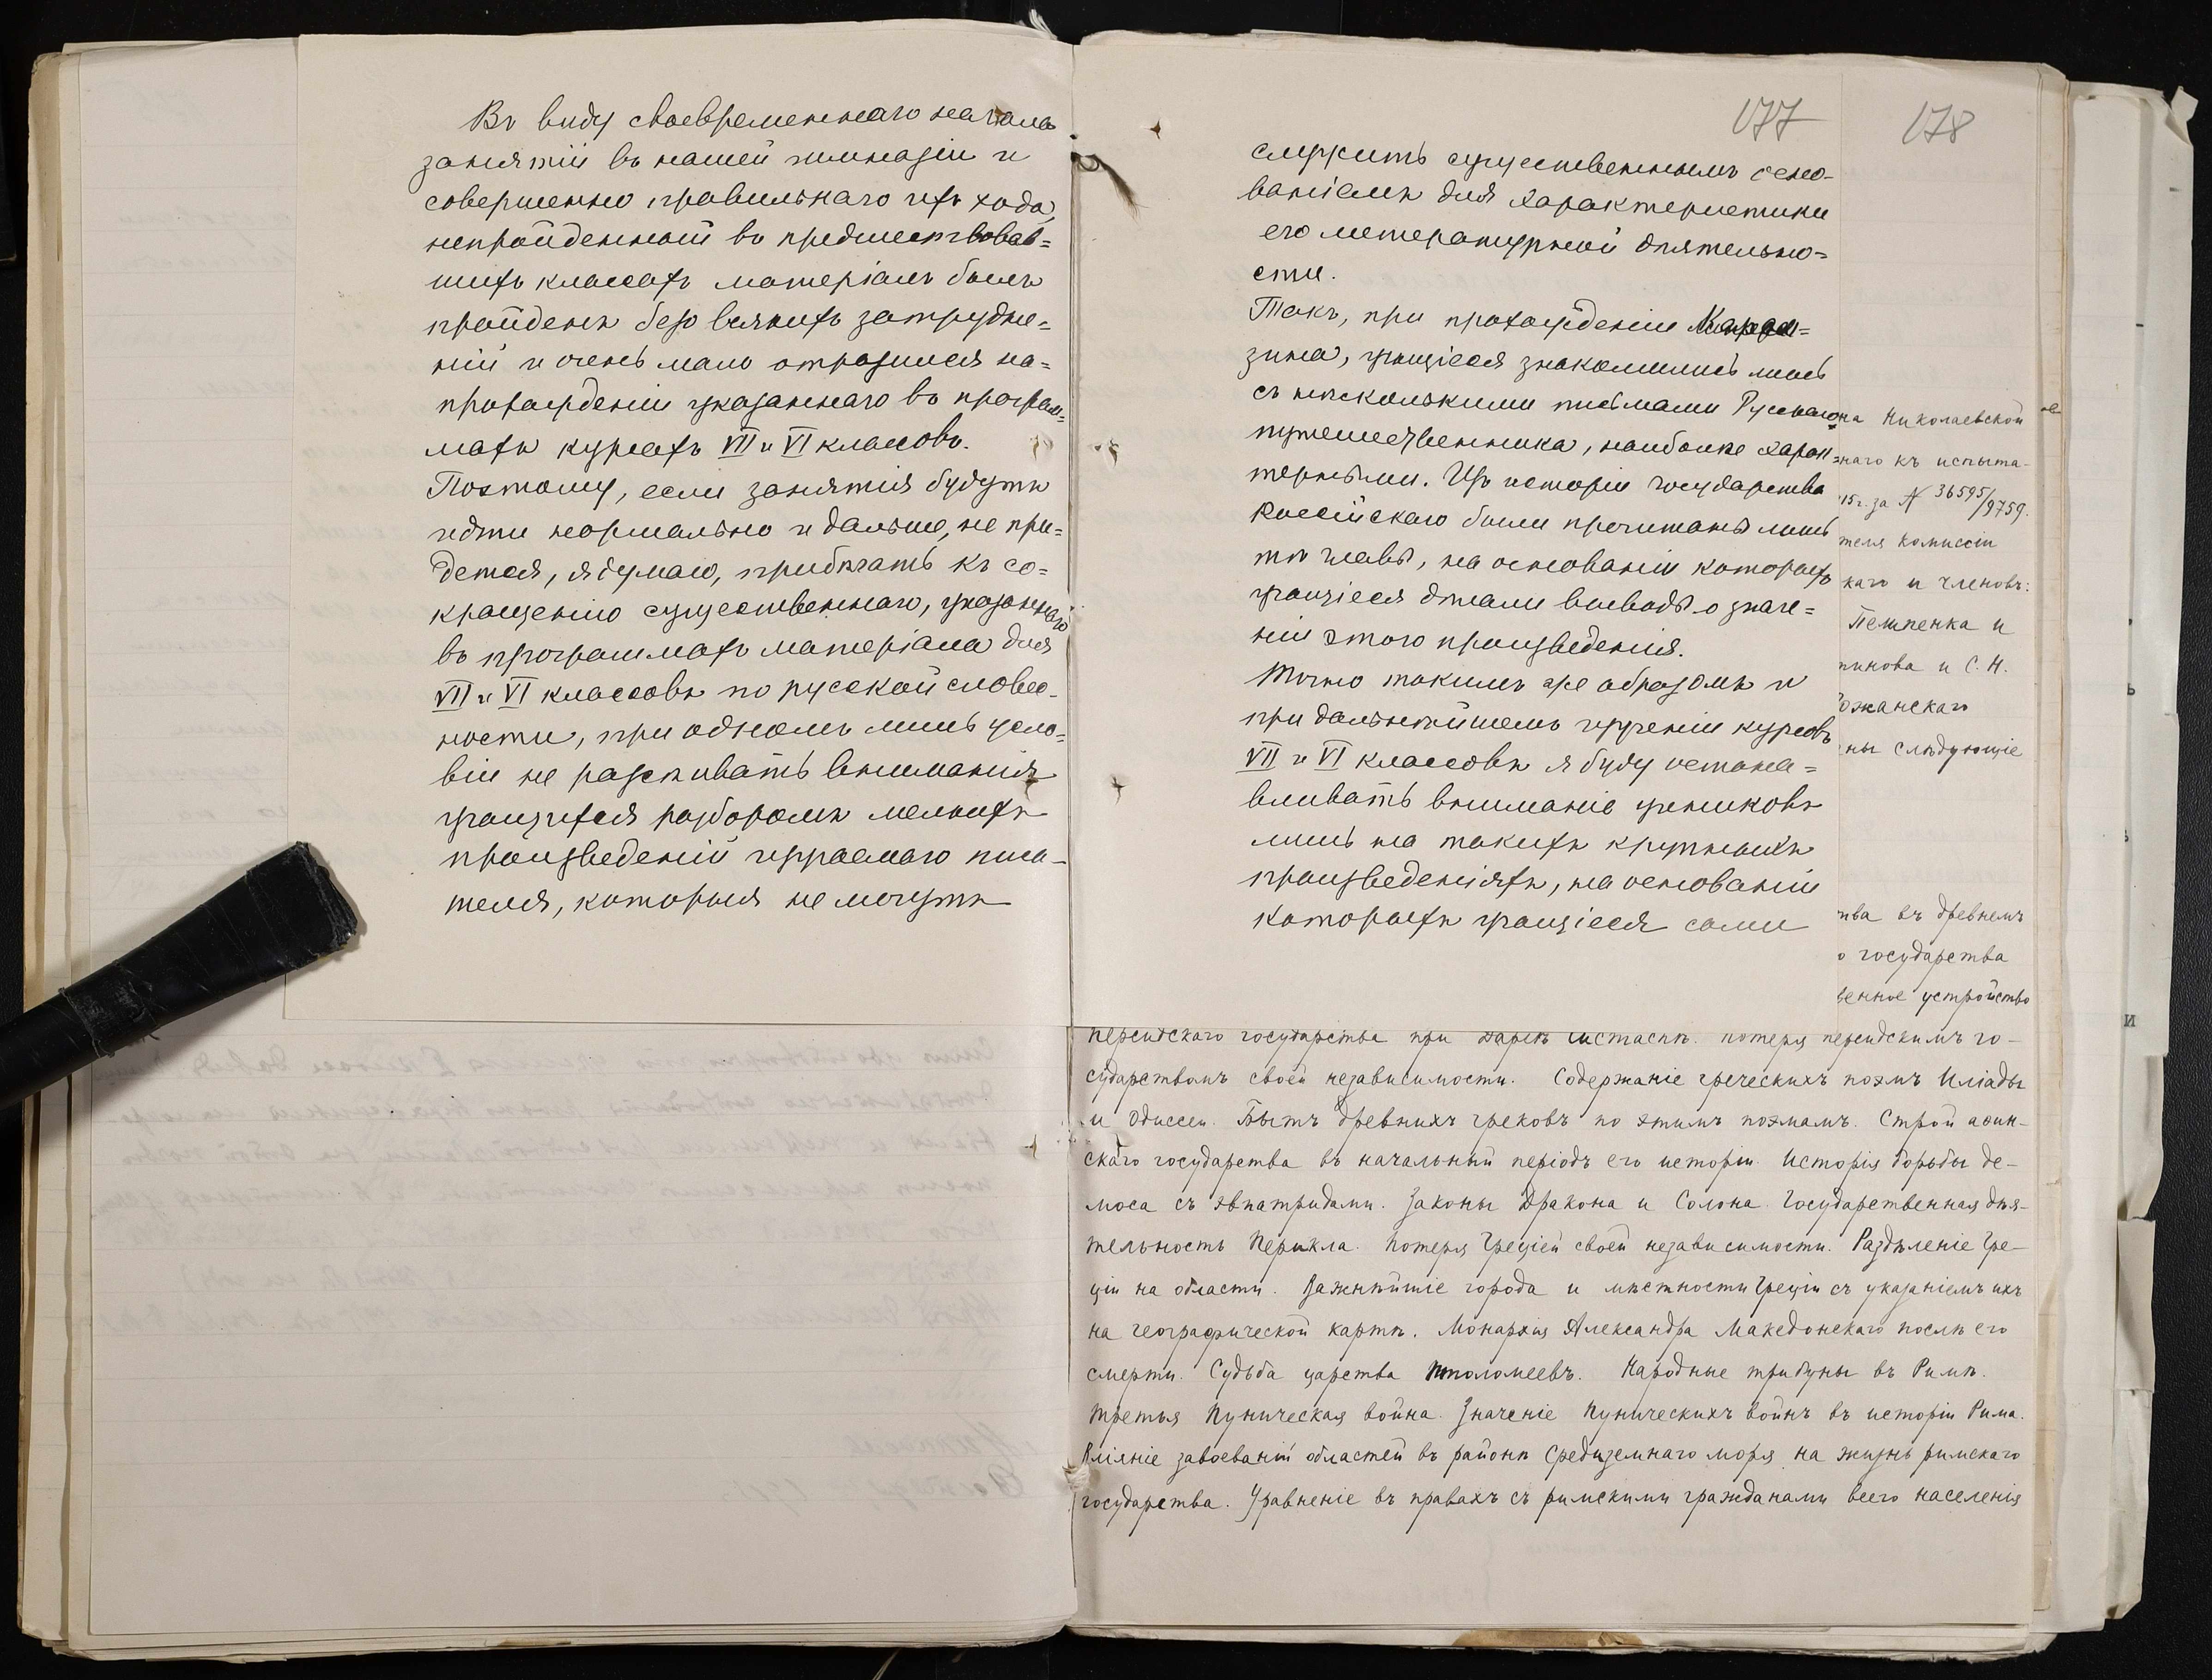 Въ виду своевременнаго начала
занятій въ нашей гимназіи и
совершенно правильнаго ихъ хода,
непройденный въ предшествовав=
шихъ классахъ матеріалъ былъ
пройденъ безъ всякихъ затрудне=
ній и очень мало отразился на=
прохожденіи указаннаго въ програм=
махъ курсахъ VII и VI классовъ.
Поэтому, если занятія будутъ
идти нормально и дальше, не при=
дется, я думаю, прибѣгать къ со=
кращенію существеннаго, указаннаго
въ программахъ матеріала для
VII и VI классовъ по русской словес-
ности, при одномъ лишь усло=
віи не разсѣивать вниманія
учащихся разборомъ мелкихъ
произведеній изучаемаго писа-
теля, которыя не могутъ
177
служить существеннымъ осно-
ваніемъ для характеристики
его литературной дѣятельно=
сти.
Такъ, при прохожденіи Карам=
зина, учащіеся знакомились лишь
съ нѣсколькими письмами Русскаго
путешественника, наиболѣе харак=
терными. Изъ исторіи государства
Россійскаго были прочитаны лишь
тѣ главы, на основаніи которыхъ
учащіеся дѣлали выводы о значе=
ніи этого произведенія.
Точно такимъ же образомъ и
при дальнѣйшемъ изученіи курсовъ
VII и VI классовъ я буду остана=
вливать вниманіе учениковъ
лишь на такихъ крупныхъ
произведеніяхъ, на основаніи
которыхъ учащіеся сами
178
на Николаевской
наго къ испыта-
15 г. за № 36595/9759.
теля комиссіи
каго и членовъ:
Пемпенка и
пинова и С. Н.
ожанскаго
ны слѣдующіе
ива въ древнемъ
о государства
венное устройство
персидскаго государства при Даріѣ Истаспѣ. Потеря персидскимъ го-
сударствомъ своей независимости. Содержаніе греческихъ поэмъ Иліады
и Одиссеи. Бытъ древнихъ грековъ по этимъ поэмамъ. Строй аѳин-
скаго государства въ начальный періодъ его исторіи. Исторія борьбы де-
моса съ эвпатридами. Законы Дракона и Солона. Государственная дѣя-
тельность Перикла. Потеря Греціей своей независимости. Раздѣленіе Гре-
ціи на области. Важнѣйшіе города и мѣстности Греціи съ указаніемъ ихъ
на географической картѣ. Монархія Александра Македонскаго послѣ его
смерти. Судьба царства Птоломеевъ. Народные трибуны въ Римѣ.
Третья Пуническая война. Значеніе Пуническихъ войнъ въ исторіи Рима.
Вліяніе завоеваній областей въ районѣ Средиземнаго моря на жизнь римскаго
государства. Уравненіе въ правахъ съ римскими гражданами всего населенія